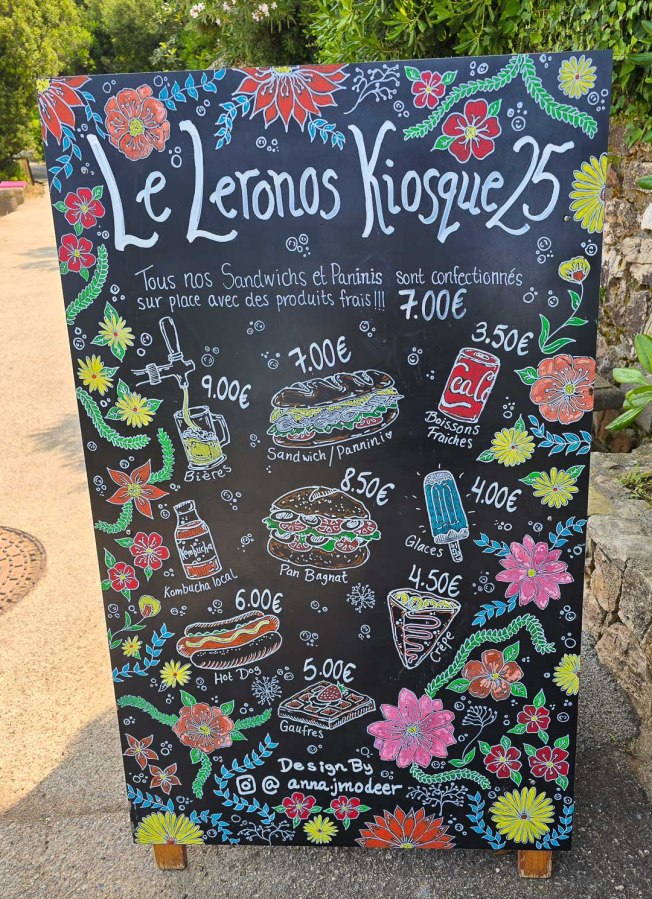 Le Leronos Kiosque 25
Tous nos Sandwichs et Paninis sont confectionnés
sur place avec des produits frais!!! 7.00€
9.00€
Bières
7.00€
Sandwich/Pannini
3.50€
Cala
Boissons
Fraiches
Kombucha
Kombucha local
8.50€
Pan Bagnat
4.00€
Glaces
6.00€
Hot Dog
4.50€
Crêpe
5.00€
Gaufres
Design By
@ anna.jmodeer